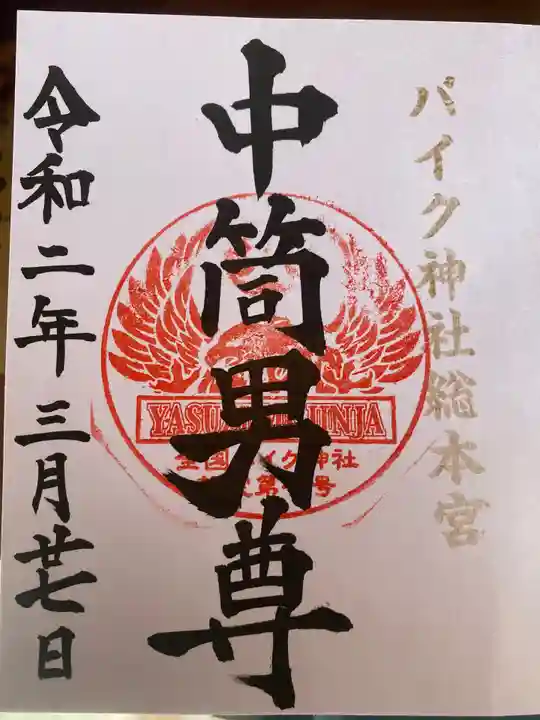 バイク神社総本宮
中筒男尊
全国バイク神社
第 号
令和二年三月廿七日